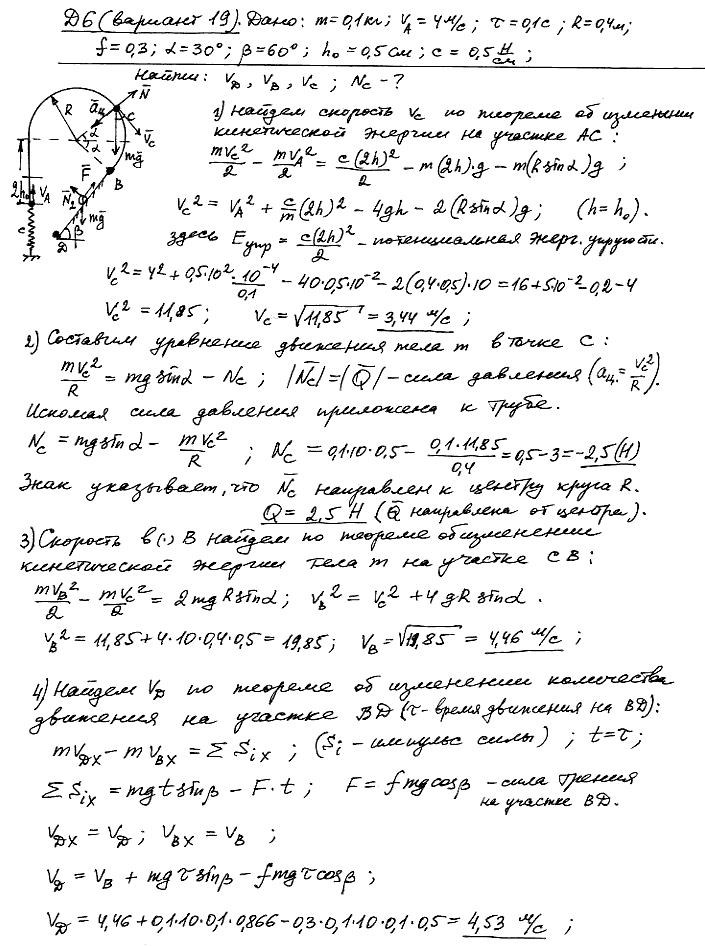 Д6 (вариант 19). Дано: m = 0,1 кг; V_A = 4 м/с; τ = 0,1 с; R = 0,4 м;
f = 0,3; α = 30°; β = 60°; h₀ = 0,5 см; c = 0,5 Н/см;
Найти: V_D, V_B, V_C; N_C - ?
N̄
ā_ц
R
C
α
α
V̄_C
mḡ
F̄
B
2h₀
V_A
N̄₂
mḡ
c
D
β
1) Найдем скорость V_C по теореме об изменении
кинетической энергии на участке AC:
mV_C²/2 - mV_A²/2 = c(2h)²/2 - m(2h)·g - m(R sinα)g;
V_C² = V_A² + c/m (2h)² - 4gh - 2(R sinα)g; (h = h₀).
здесь E_упр = c(2h)²/2 - потенциальная энерг. упругости.
V_C² = 4² + 0,5·10²·10⁻⁴/0,1 - 40·0,5·10⁻² - 2(0,4·0,5)·10 = 16 + 5·10⁻² - 0,2 - 4
V_C² = 11,85; V_C = √11,85 = 3,44 м/с;
2) Составим уравнение движения тела m в точке C:
mV_C²/R = mg sinα - N_C; |N̄_C| = |Q̄| - сила давления (a_ц = V_C²/R).
Искомая сила давления приложена к трубе.
N_C = mg sinα - mV_C²/R; N_C = 0,1·10·0,5 - 0,1·11,85/0,4 = 0,5 - 3 = -2,5 (Н)
Знак указывает, что N̄_C направлен к центру круга R.
Q = 2,5 Н (Q̄ направлена от центра).
3) Скорость в (·) B найдем по теореме об изменении
кинетической энергии тела m на участке CB:
mV_B²/2 - mV_C²/2 = 2mgR sinα; V_B² = V_C² + 4gR sinα.
V_B² = 11,85 + 4·10·0,4·0,5 = 19,85; V_B = √19,85 = 4,46 м/с;
4) Найдем V_D по теореме об изменении количества
движения на участке BD (τ - время движения на BD):
mV_DX - mV_BX = Σ S_ix; (S_i - импульс силы); t = τ;
Σ S_ix = mgt sinβ - F·t; F = fmg cosβ - сила трения
на участке BD.
V_DX = V_D; V_BX = V_B;
V_D = V_B + mgτ sinβ - fmgτ cosβ;
V_D = 4,46 + 0,1·10·0,1·0,866 - 0,3·0,1·10·0,1·0,5 = 4,53 м/с;